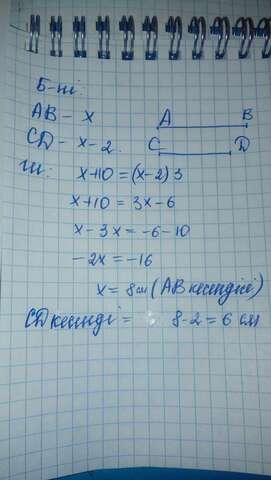 Б-ні:
AB - x
A B
CD - x-2.
C D
Ш: x+10 = (x-2)3
x+10 = 3x-6
x-3x = -6-10
-2x = -16
x = 8см (AB кесіндісі)
CD кесінді = 8-2 = 6 см